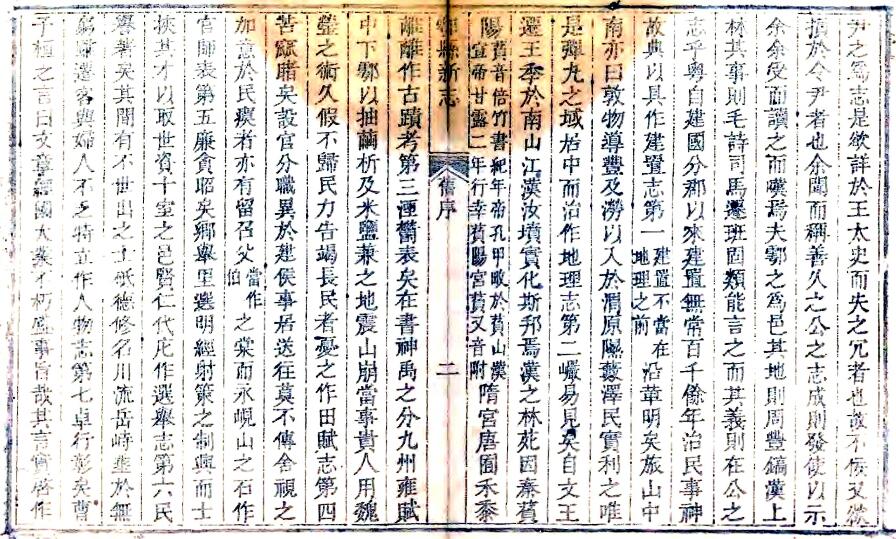 尹之爲志是欲詳於王太史而失之冗者也故不侫又
損於令尹者也余聞而稱善久之公之志成則發使以示
余余受而讀之而嘆焉夫鄠之爲邑其地則周豐鎬漢上
林其事則毛詩司馬遷班固類能言之而其義則在公之
志乎粤自建國分郡以來建置無常百千餘年治民事神
故典以具作建置志第一建置不當在地理之前沿革明矣旅山中
南亦曰敦物導豐及澇以入於渭原隰藪澤民實利之唯
是彈九之域居中而治作地理志第二巖易見矣自文王
遷王季於南山江漢汝墳實化斯邦焉漢之林苑因秦萯
陽萯音倍竹書紀年帝孔甲畋於萯山漢宣帝甘露二年行幸萯陽宮萯又音附隋宮唐囿禾黍
鄠縣新志 舊序 二
離離作古蹟考第三湮鬱表矣在書神禹之分九州雍賦
中下鄠以抽繭析及米鹽兼之地震山崩當事貴人用魏
瑩之術久假不歸民力告竭長民者憂之作田賦志第四
苦窳睹矣設官分職異於建侯事居送往莫不傳舍視之
加意於民瘼者亦有留召父當作伯之棠而永峴山之石作
官師表第五廉貪昭矣鄉舉里選明經射策之制興而士
挾其才以取世資十室之邑賢仁代庀作選舉志第六民
譽著矣其間有不世出之士砥德修名川流岳峙並於無
窮郵遷客與婦人不乏特立作人物志第七卓行彰矣曹
子桓之言曰文章經國大業不朽盛事旨哉其言實啓作